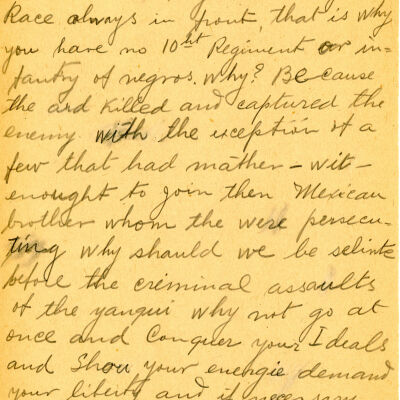 Race always in front, that is why
you have no 10ht Regiment or in-
fantry of negros. Why? Because
the ard killed and captured the
enemy with the exception of a
few that had mather-wit-
enought to join then Mexican
brother whom the were persecu-
ting why should we be selinte
before the criminal assaults
of the yanqui why not go at
once and Conquer your Ideals
and Show your energie demand
your liberty and if necessary